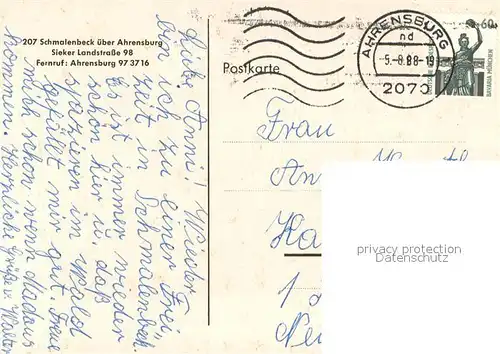 207 Schmalenbeck über Ahrensburg
Sieker Landstraße 98
Fernruf: Ahrensburg 97 37 16
Liebe Anni! Wieder
bin ich zu einer Frei,
zeit in Schmalenbeck.
Es ist immer wieder
schön hier u. daß
spazieren im Wald
gefällt mir gut. Freue
mich schon wenn
kommen. Herzliche Grüße v. Walter
Postkarte
AHRENSBURG
nd
-5.-8.88-19
2070
60
BAVARIA MÜNCHEN
Frau
An
Ka
1
privacy protection
Datenschutz